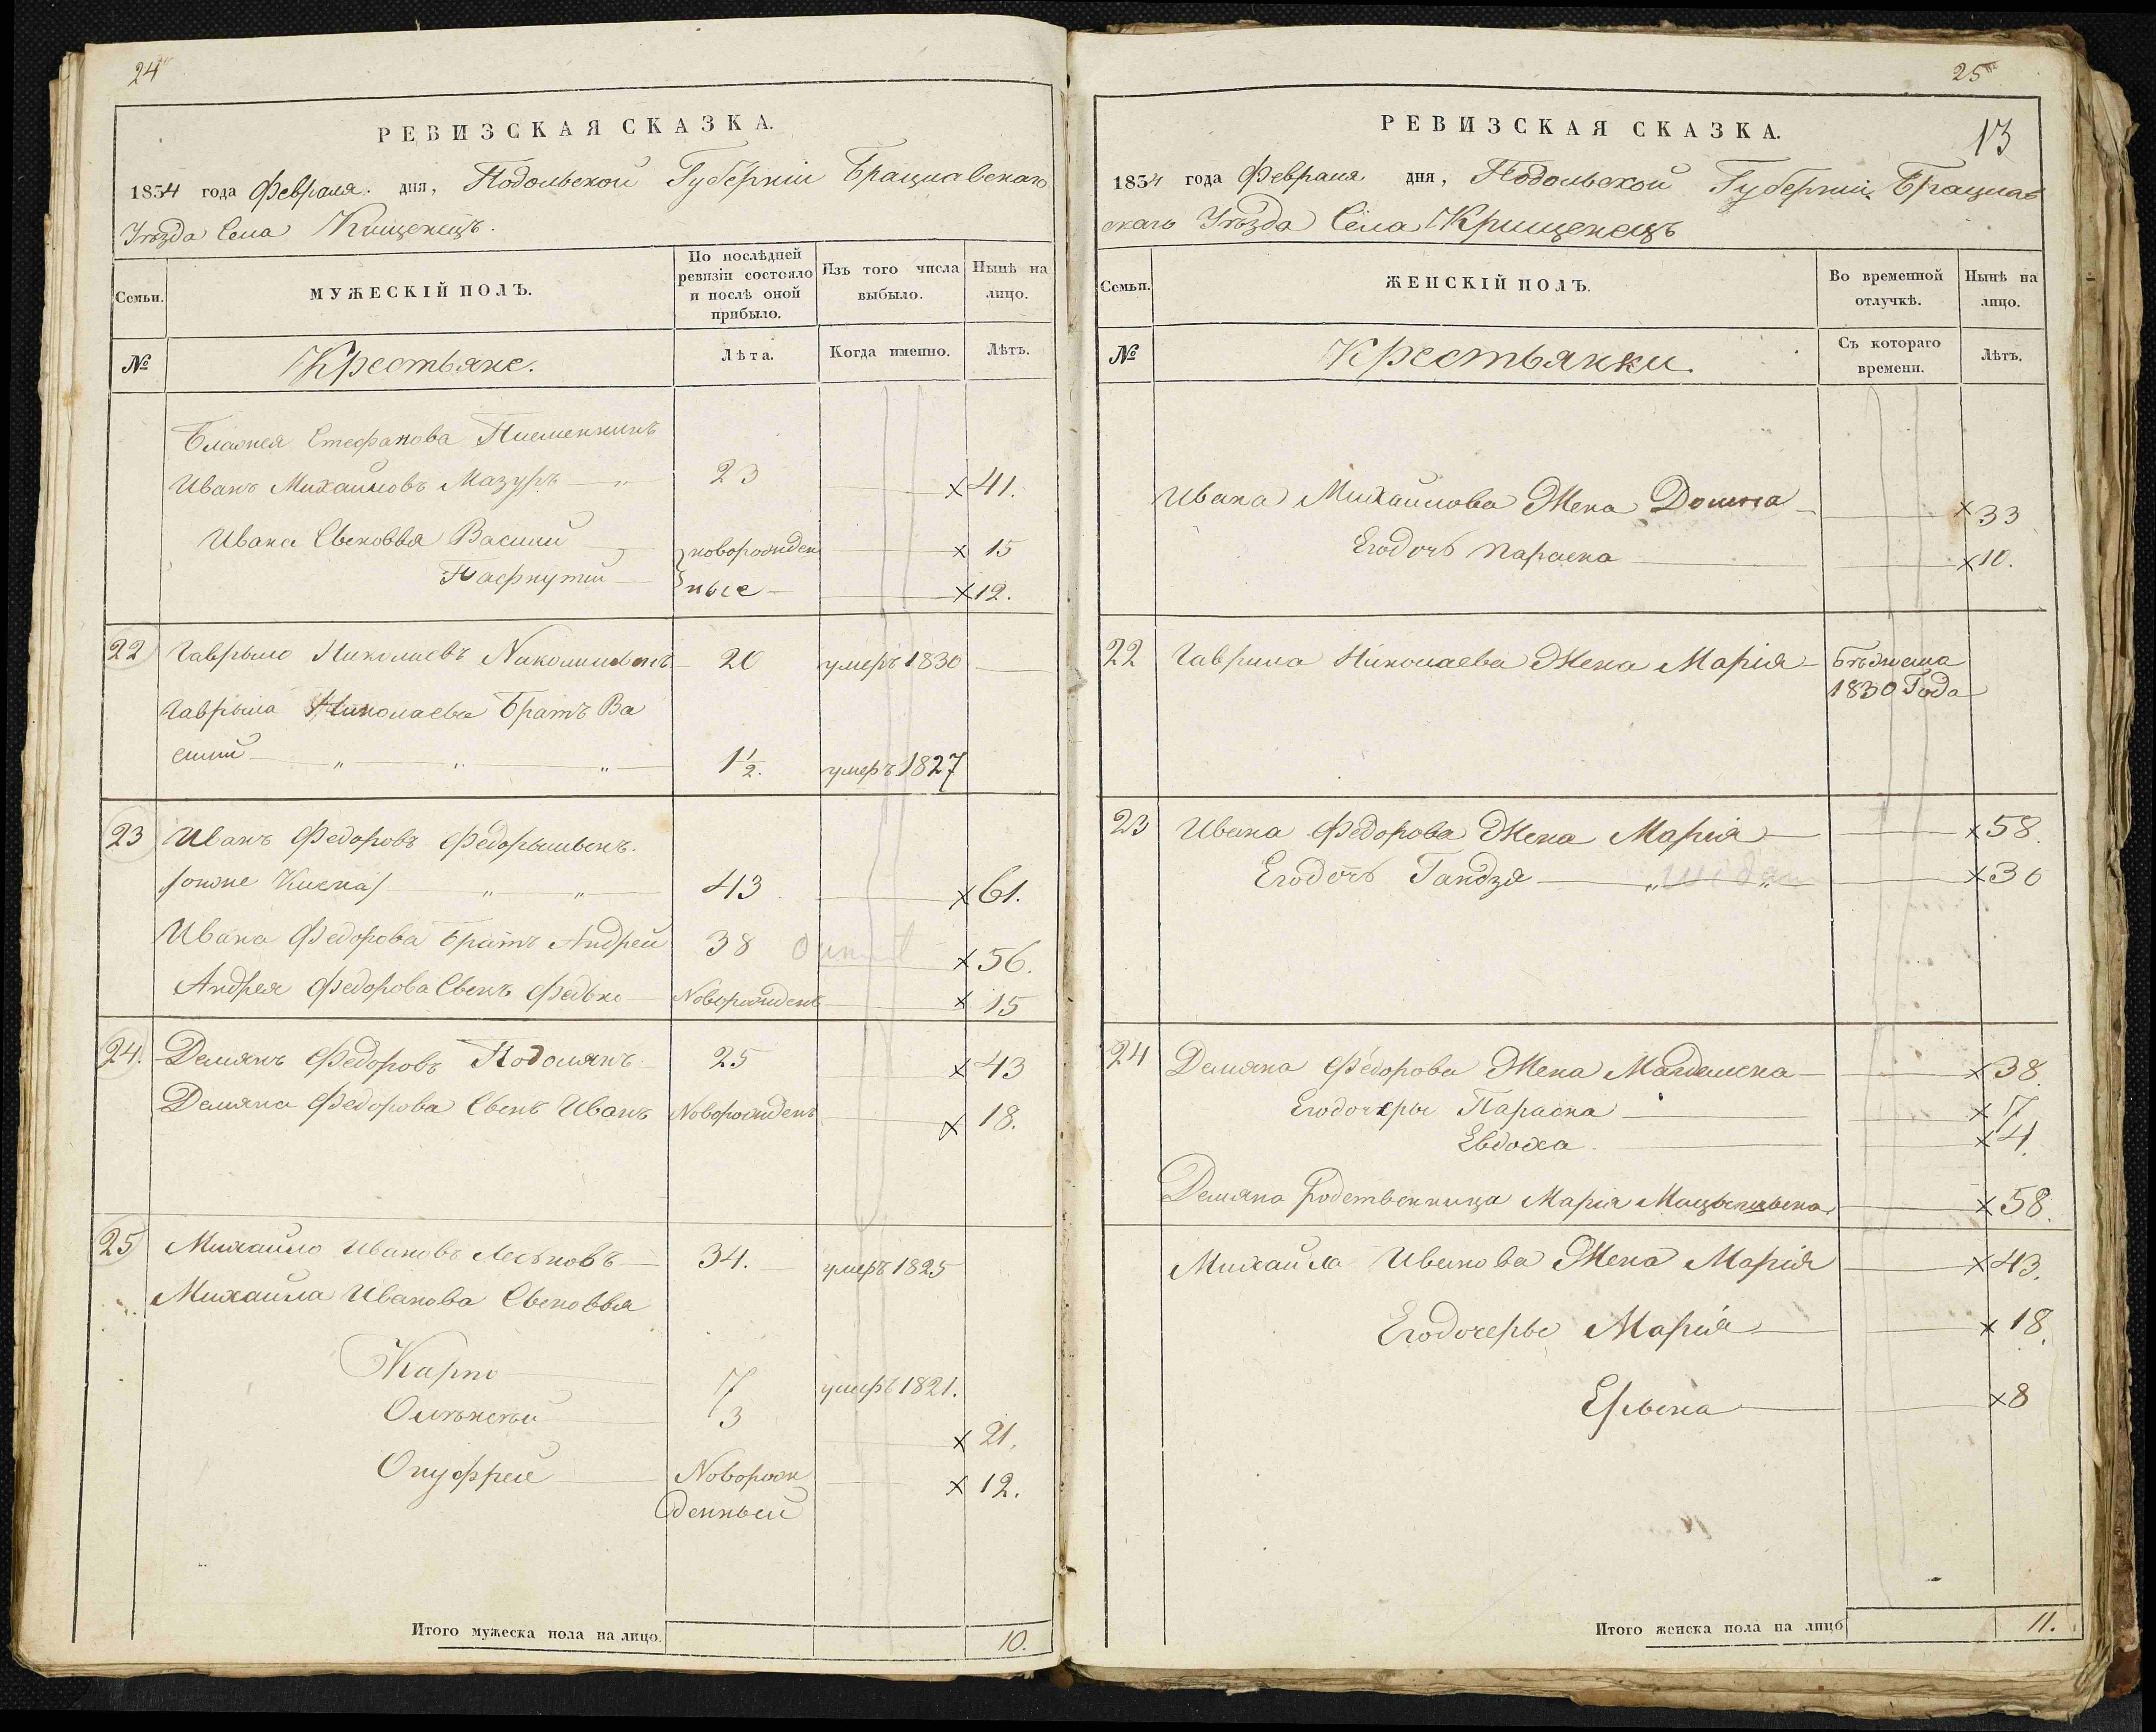 24
РЕВИЗСКАЯ СКАЗКА.
1834 года Февраля. дня, Подольской Губерніи Брацлавскаго
Уѣзда Села Кищенецъ.
Семьи.
МУЖЕСКІЙ ПОЛЪ.
По послѣдней ревизіи состояло и послѣ оной прибыло.
Изъ того числа выбыло.
Нынѣ на лицо.
№
Крестьяне.
Лѣта.
Когда именно.
Лѣтъ.
Стефанова
Иванъ Михайловъ Мазуръ 23 × 41.
Ивана Сыновья Васили новорожден × 15
Пафнутий ные × 12.
22 Гаврыло Николаевъ 20 умеръ 1830
Гаврыла Николаева Братъ Ва
силий 1 1/2. умеръ 1827
23 Иванъ Федоровъ Федорышынъ.
/онже 43 × 61.
Ивана Федорова Братъ Андрей 38 × 56.
Андрея Федорова Сынъ Федько Новорожденъ × 15
24. Демянъ Федоровъ Подолянъ 25 × 43
Демяна Федорова Сынъ Иванъ Новорожденъ × 18.
25 Михайло Ивановъ 34. умеръ 1825
Михайла Иванова Сыновья
Карпо 7 умеръ 1821.
Олѣксѣй 3 × 21.
Онуфрей Новорож × 12.
денный
Итого мужеска пола на лицо. 10.
25
13
РЕВИЗСКАЯ СКАЗКА.
1834 года Февраля дня, Подольской Губерніи Брацлав
скаго Уѣзда Села Крищенецъ
Семьи.
ЖЕНСКІЙ ПОЛЪ.
Во временной отлучкѣ.
Нынѣ на лицо.
№
Крестьянки.
Съ котораго времени.
Лѣтъ.
Ивана Михайлова Жена Домна × 33
Егодочь Параска × 10.
22 Гаврила Николаева Жена Марія Бѣжала
1830 Года
23 Ивана Федорова Жена Марія × 58.
Егодочь Гандзя × 30
24 Демяна Федорова Жена Магделена × 38.
Егодочеры Параска × 7
Евдоха × 4.
Демяна родственница Марія × 58.
Михайла Иванова Жена Марія × 43.
Егодочеры Марія × 18.
× 8
Итого женска пола на лицо 11.